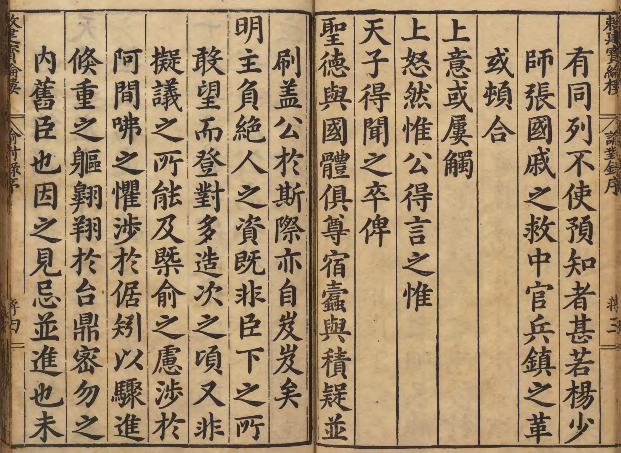 有同列不使預知者甚若楊少
師張國戚之救中官兵鎮之革
或頓合
上意或屢觸
上怒然惟公得言之惟
天子得聞之卒俾
聖德與國體俱尊宿蠹與積疑並
刷盖公於斯際亦自岌岌矣
明主負絶人之資既非臣下之所
敢望而登對多造次之頃又非
擬議之所能及槩俞之慮涉於
阿間咈之懼涉於倨矧以驟進
倏重之軀翱翔於台鼎密勿之
内舊臣也因之見忌並進也未